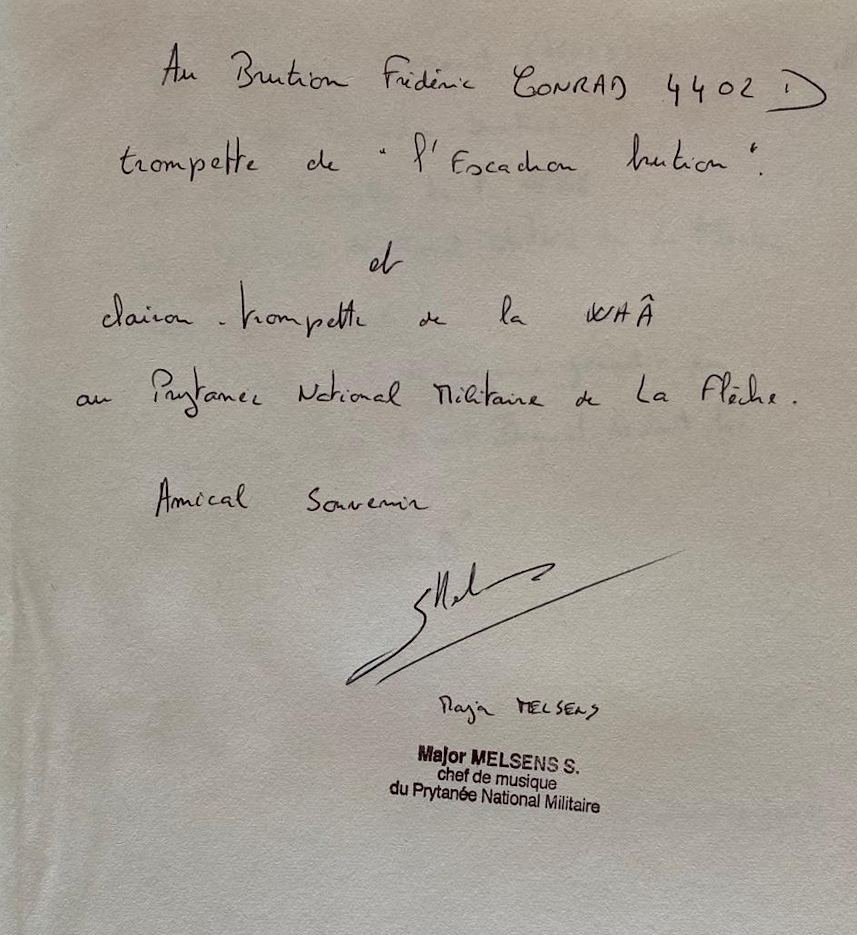 Au Brution Frédéric CONRAD 4402 D
trompette de "l'Escadron brution".
et
clairon-trompette de la KHÂ
au Prytanée National Militaire de La Flèche.
Amical Souvenir
Major MELSENS
Major MELSENS S.
chef de musique
du Prytanée National Militaire